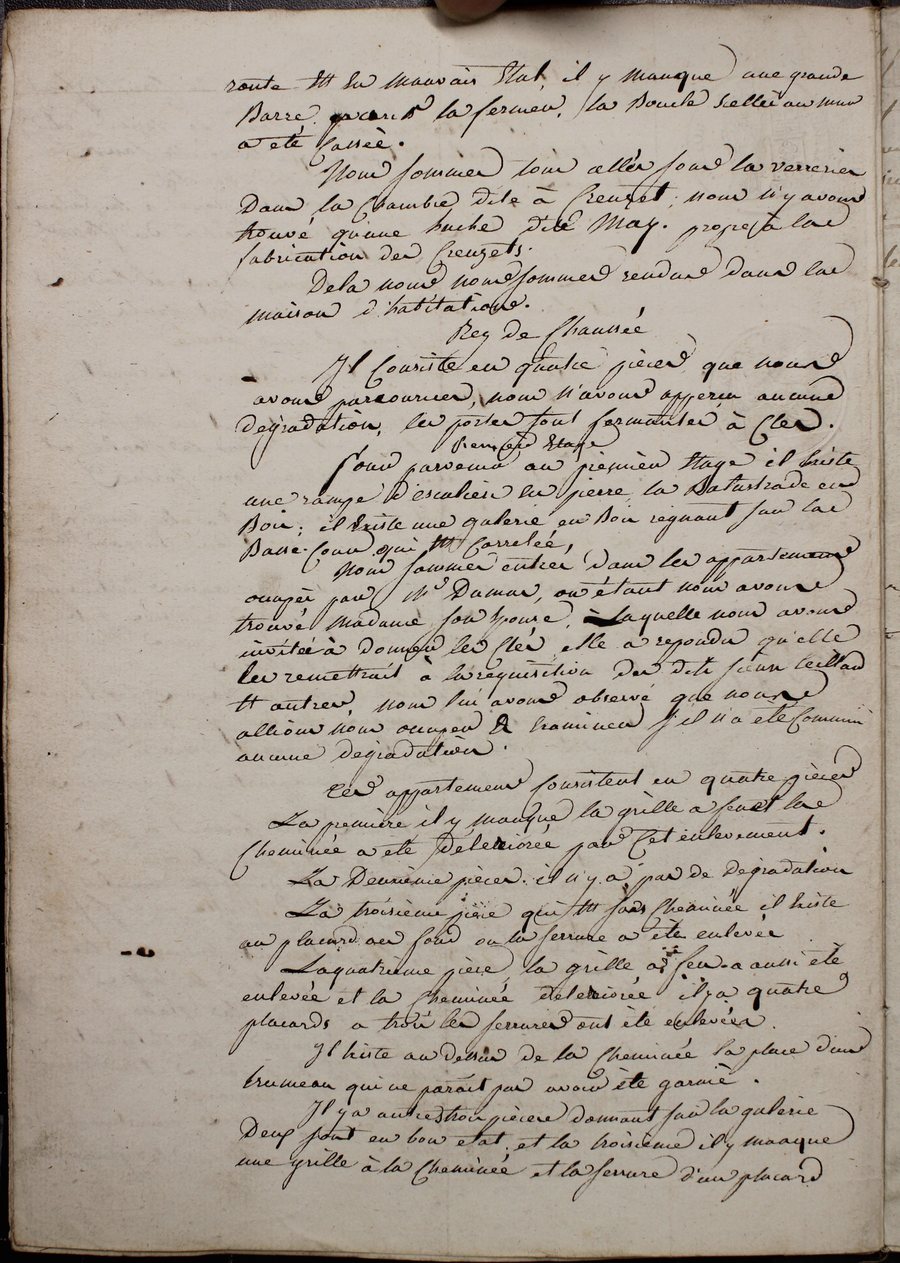 route est en mauvais Etat, il y manque une grande
Barre pour la fermer, la Boucle scellée au mur
a été Cassée.
Nous sommes tous allés sous la verrerie
Dans la Chambre dite à Creuzet, nous n'y avons
trouvé qu'une huche dite May. propre à la
fabrication des Creuzets.
Dela nous nous sommes rendus dans la
maison d'habitation.
Rez de Chaussée
Il Consiste en quatre pièces que nous
avons parcourues, nous n'avons apperçu aucune
degradation, les portes sont fermantes à Clef.
Premier Etage
Sous parvenu au premier Etage il Existe
une rampe d'escalier en pierre, la Balustrade en
Bois; il Existe une galerie en Bois regnant sur la
Basse-Cour qui est Carrelée,
Nous sommes entrés dans les appartements
occupés par Mr Dumas, où étant nous avons
trouvé Madame son Epouse, à Laquelle nous avons
invitée à donner les Clés, elle a repondu qu'elle
les remettrait à la requisition des dits sieurs
et autres, nous lui avons observé que nous
allions nous occuper à Examiner s'il n'a été Commis
aucune degradation.
Ces appartements Consistent en quatre pièces
La première il y manque la grille a feu et la
Cheminée a été déteriorée par Cet enlevement.
La Deuxième pièce. il n'y a pas de Degradation
La troisième pièce qui est sans Cheminée il Existe
un placard au fond ou la serrure a été enlevée
La quatrieme pièce, la grille à feu a aussi été
enlevée et la Cheminée déteriorée il y a quatre
placards a trois les serrures ont été enlevées.
Il Existe au dessus de la Cheminée la place d'un
trumeau qui ne parait pas avoir été garnie.
Il y a autres trois pièces donnant sur la galerie
Deux sont en bon etat, et la troisieme il y manque
une grille à la Cheminée et la serrure d'un placard